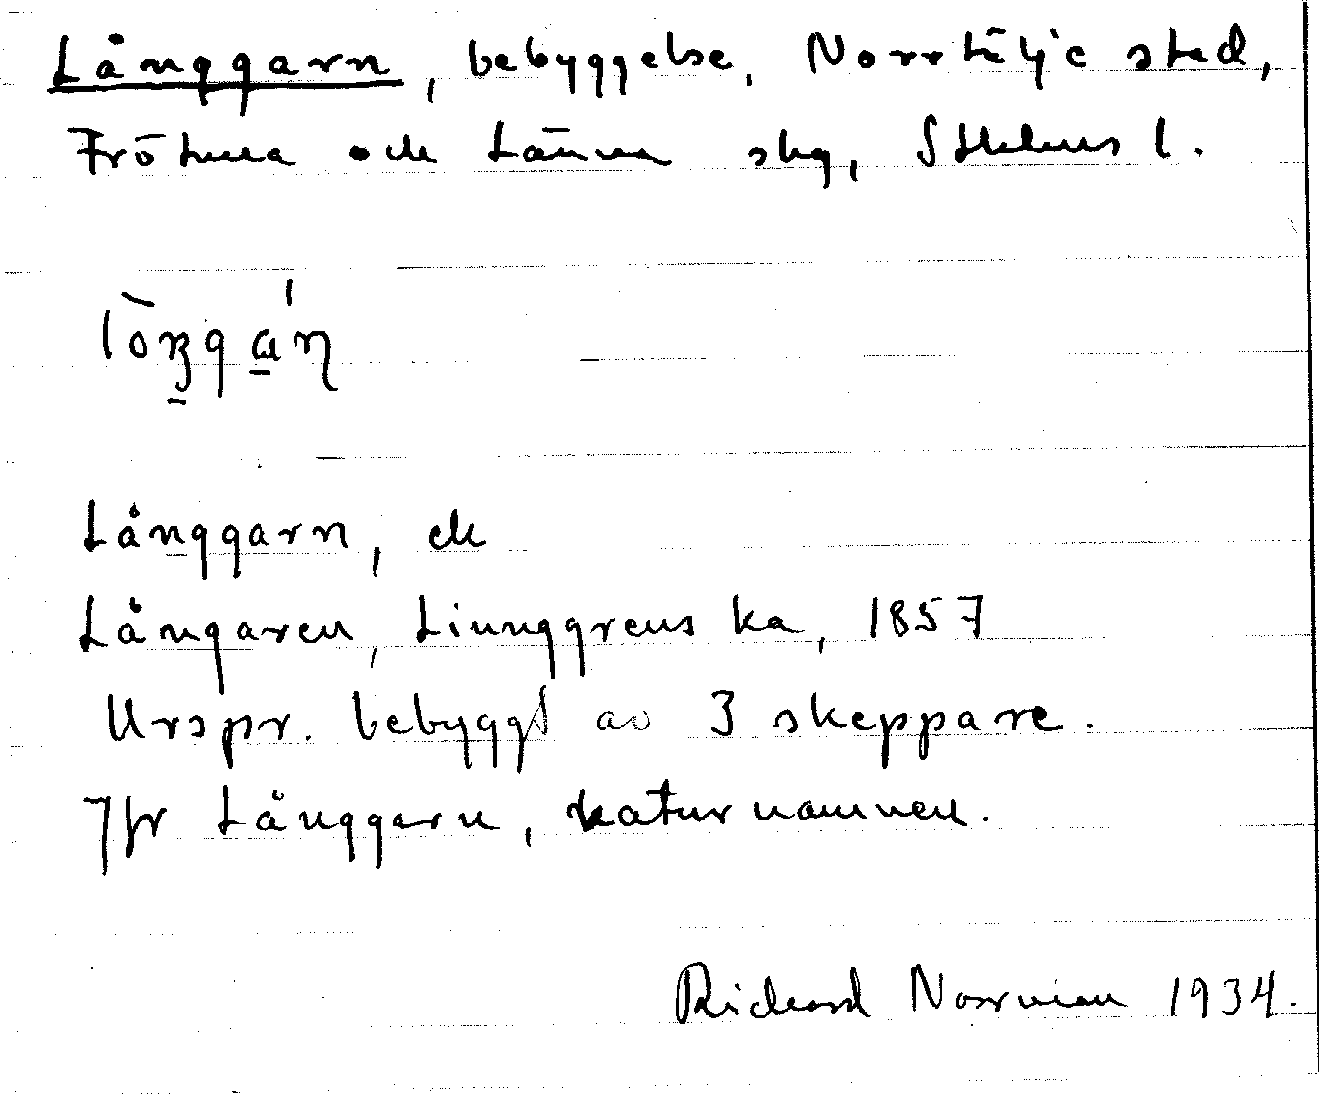 Långgarn, bebyggelse, Norrtälje stad,
Frötuna och Länna skg, Sthlms l.
lòŋga̱ɳ
Långgarn, ek
Långaren, Ljunggrens ka, 1857
Urspr. bebyggt av 3 skeppare.
Jfr Långgarn, naturnamnen.
Rickard Norrman 1934.